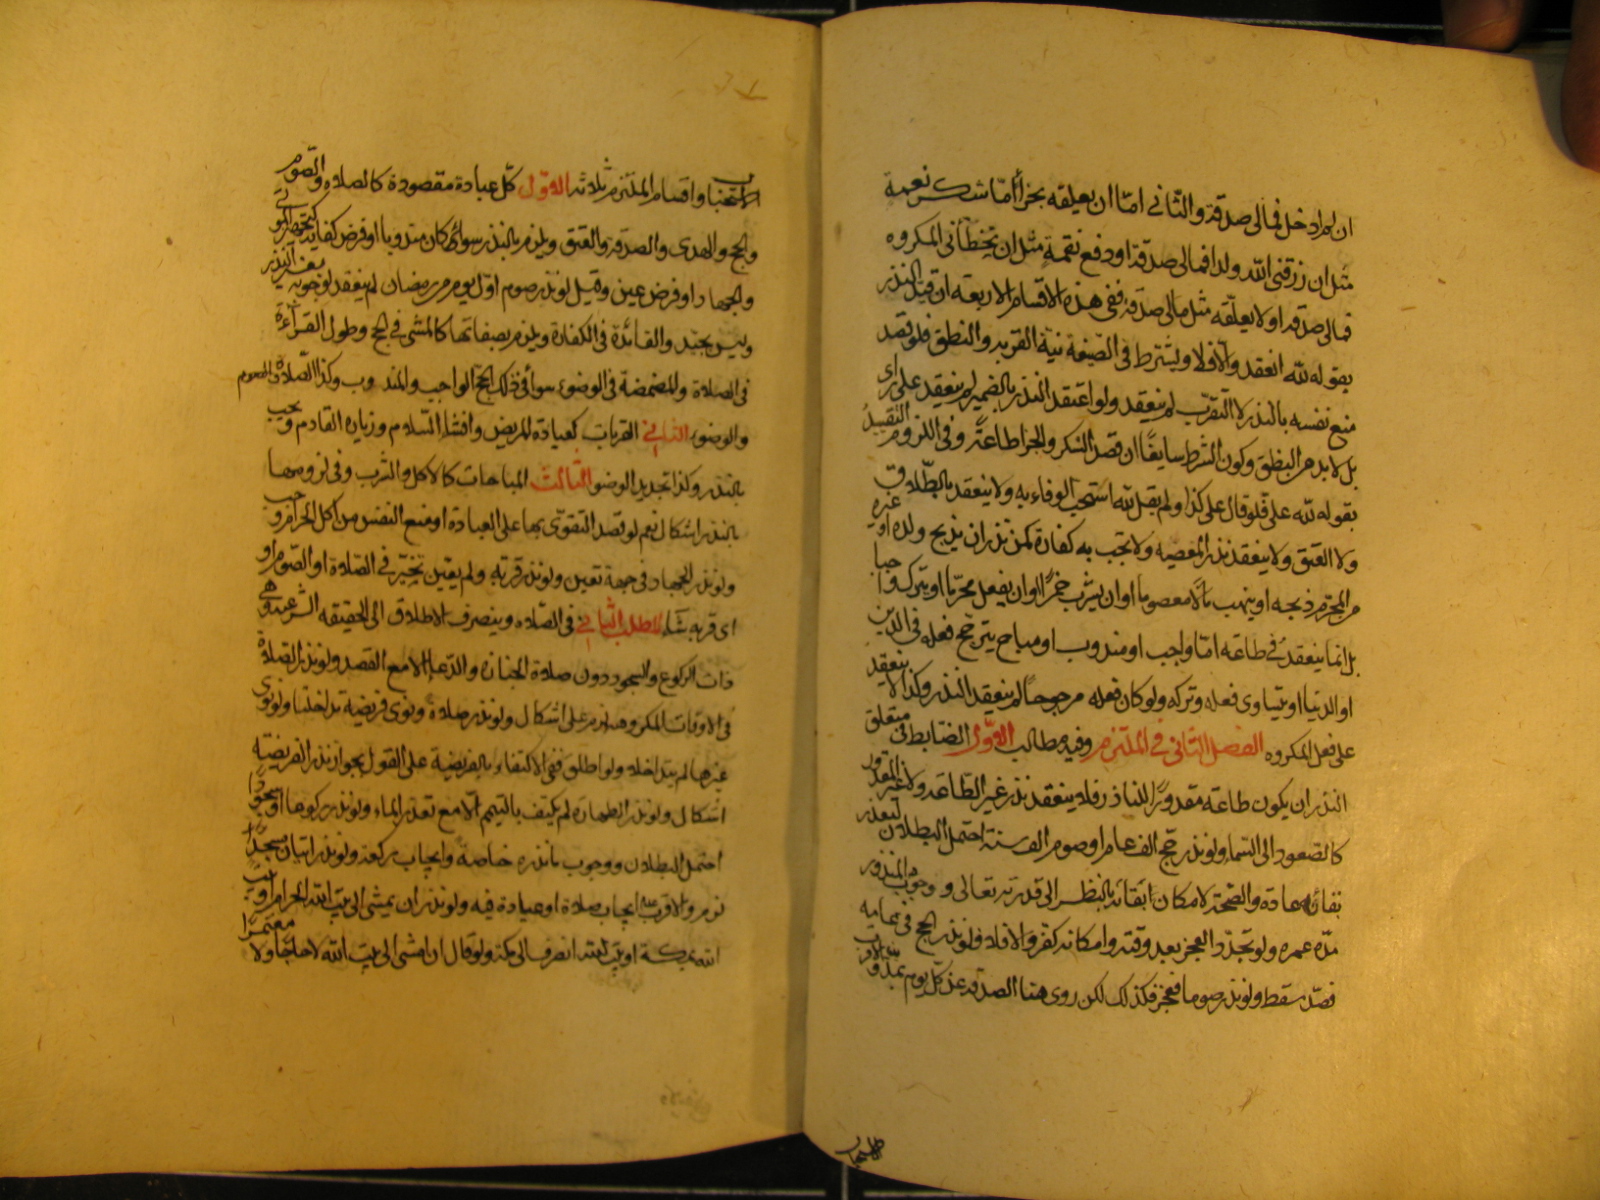 ان لم ادخل فمالى صدقة والثانى امّا ان يعلقه بجزاء امّا شكر نعمة
مثل ان رزقنى الله ولدا فمالى صدقة او دفع نقمة مثل ان تخطأنى المكروه
فمالى صدقة او لا يعلّقه مثل مالى صدقة ففى هذه الاقسام الاربعة ان قيّد النذر
بقوله لله انعقد والا فلا ويشترط فى الصيغة نية القربة والنطق فلو قصد
منع نفسه بالنذر لا التقرّب لم ينعقد ولو اعتقد النذر بالضمير لم ينعقد على راى
بل لابد من النطق وكون الشرط سايغًا ان قصد الشكر والجزا طاعة وفى اللزوم التقييد
بقوله لله علىّ فلو قال علىّ كذا ولم يقل لله استحب الوفاء به ولا ينعقد بالطلاق
ولا العتق ولا ينعقد نذر المعصية ولا تجب به كفارة كمن نذر ان يذبح ولده او غيره
من المحرّم ذبحه او ينهب مالًا معصوما او ان يشرب خمرًا او ان يفعل محرّما او يترك واجبا
بل انما ينعقد فى طاعة امّا واجب او مندوب او مباح يترجّح فعله فى الدين
او الدنيا او يتساوى فعله وتركه ولو كان فعله مرجوحا لم ينعقد النذر وكذا لا ينعقد
على فعل المكروه الفصل الثانى فى الملتزم وفيه مطالب الاوّل الضابط فى متعلق
النذر ان يكون طاعة مقدورًا للناذر فلا ينعقد نذر غير الطاعة ولا غير المقدور
كالصعود الى السماء ولو نذر حج الف عام او صوم الف سنة احتمل البطلان لتعذر
بقائه عادة والصحة لامكان ابقائه بالنظر الى قدرته تعالى و وجوب المنذور
مدّة عمره ولو تجدّد العجز بعد وقته وامكانه كفر والا فلا فلو نذر الحج فى عامه
فصدّ سقط ولو نذر صوما فعجز فكذلك لكن روى هنا الصدقة عن كل يوم بمد
الاستحباب واقسام الملتزم ثلاثة الاوّل كلّ عبادة مقصودة كالصلاة والصّوم
والحج والهدى والصدقة والعتق ويلزم بالنذر سواء كان مندوبا او فرض كفاية كتجهيز الموتى
والجهاد او فرض عين وقيل لو نذر صوم اوّل يوم من رمضان لم ينعقد لوجوبه بغير النذر
وليس بجيّد والفائدة فى الكفارة ويلزم بصفاتها كالمشى فى الحج وطول القراءة
فى الصلاة والمضمضة فى الوضوء سواء فى ذلك الحج الواجب والمندوب وكذا الصّلاة والصوم
والوضوء الثانى القربات كعيادة المريض وافشاء السلام وزيارة القادم ويجب
بالنذر وكذا تجديد الوضوء الثالث المباحات كالاكل والشرب وفى لزومها
بالنذر اشكال نعم لو قصد التقوّى بها على العبادة او منع النفس من اكل الحرام وجب
ولو نذر الجهاد فى جهة تعين ولو نذر قربة ولم يعين تخيّر فى الصلاة او الصّوم او
اى قربة شاء المطلب الثانى فى الصلاة وينصرف الاطلاق الى الحقيقة الشرعية وهى
ذات الركوع والسجود دون صلاة الجنازة والدّعاء الا مع القصد ولو نذر الصلاة
فى الاوقات المكروهة لزم على اشكال ولو نذر صلاة ونوى فريضة تداخلتا ولو نوى
غيرها لم يتداخلا ولو اطلق ففى الاكتفاء بالفريضة على القول بجواز نذر الفريضة
اشكال ولو نذر الطهارة لم يكتف بالتيمم الّا مع تعذر الماء ولو نذر ركوعا او سجودًا
احتمل البطلان ووجوب ما نذره خاصة وايجاب ركعة ولو نذر اتيان مسجدًا
لزم والاقرب عدم ايجاب صلاة او عبادة فيه ولو نذر ان يمشى الى بيت الله الحرام او بيت
الله بمكة او بيت الله انصرف الى مكة ولو قال ان امشى الى بيت الله لا حاجًّا ولا معتمرًا